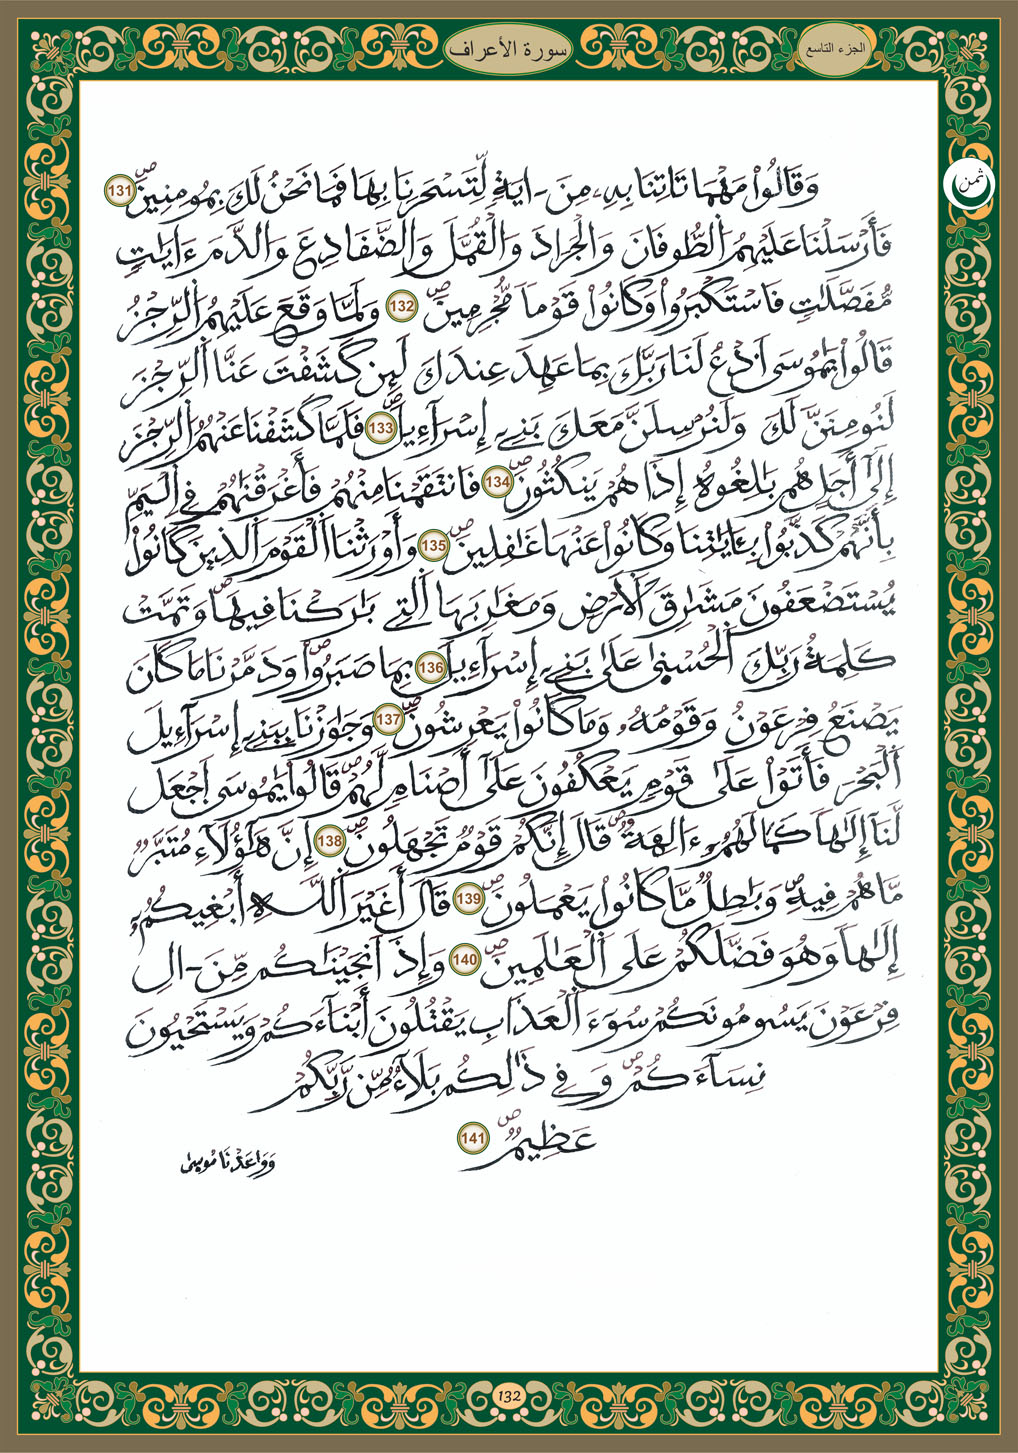 سورة الأعراف
الجزء التاسع
ثمن
وَقَالُواْ مَهْمَا تَاتِنَا بِهِۦ مِنَ ـ ايَةٖ لِّتَسْحَرَنَا بِهَا فَمَا نَحْنُ لَكَ بِمُومِنِينَۖ 131
فَأَرْسَلْنَا عَلَيْهِمُ اُلطُّوفَانَ وَالْجَرَادَ وَالْقُمَّلَ وَالضَّفَادِعَ وَالدَّمَ ءَايَٰتٖ
مُّفَصَّلَٰتٖ فَاسْتَكْبَرُواْ وَكَانُواْ قَوْماٗ مُّجْرِمِينَۖ 132 وَلَمَّا وَقَعَ عَلَيْهِمُ اُلرِّجْزُ
قَالُواْ يَٰمُوسَى اَدْعُ لَنَا رَبَّكَ بِمَا عَهِدَ عِندَكَ لَئِن كَشَفْتَ عَنَّا اَلرِّجْزَ
لَنُومِنَنَّ لَكَ وَلَنُرْسِلَنَّ مَعَكَ بَنِےٓ إِسْرَآءِيلَۖ 133 فَلَمَّا كَشَفْنَا عَنْهُمُ اُلرِّجْزَ
إِلَىٰٓ أَجَلٍ هُم بَٰلِغُوهُ إِذَا هُمْ يَنكُثُونَۖ 134 فَانتَقَمْنَا مِنْهُمْ فَأَغْرَقْنَٰهُمْ فِے اِلْيَمِّ
بِأَنَّهُمْ كَذَّبُواْ بِـَٔايَٰتِنَا وَكَانُواْ عَنْهَا غَٰفِلِينَۖ 135 وَأَوْرَثْنَا اَلْقَوْمَ اَلذِينَ كَانُواْ
يُسْتَضْعَفُونَ مَشَٰرِقَ اَلَارْضِ وَمَغَٰرِبَهَا اَلتِے بَٰرَكْنَا فِيهَاۖ وَتَمَّتْ
كَلِمَةُ رَبِّكَ اَلْحُسْنَىٰ عَلَىٰ بَنِےٓ إِسْرَآءِيلَ 136 بِمَا صَبَرُواْۖ وَدَمَّرْنَا مَا كَانَ
يَصْنَعُ فِرْعَوْنُ وَقَوْمُهُۥ وَمَا كَانُواْ يَعْرِشُونَۖ 137 وَجَٰوَزْنَا بِبَنِےٓ إِسْرَآءِيلَ
اَلْبَحْرَ فَأَتَوْاْ عَلَىٰ قَوْمٖ يَعْكُفُونَ عَلَىٰٓ أَصْنَامٖ لَّهُمْۖ قَالُواْ يَٰمُوسَى اَجْعَل
لَّنَآ إِلَٰهاٗ كَمَا لَهُمُۥٓ ءَالِهَةٞۖ قَالَ إِنَّكُمْ قَوْمٞ تَجْهَلُونَۖ 138 إِنَّ هَٰٓؤُلَآءِ مُتَبَّرٞ
مَّا هُمْ فِيهِۖ وَبَٰطِلٞ مَّا كَانُواْ يَعْمَلُونَۖ 139 قَالَ أَغَيْرَ اَللَّهِ أَبْغِيكُمُۥٓ
إِلَٰهاٗ وَهُوَ فَضَّلَكُمْ عَلَى اَلْعَٰلَمِينَۖ 140 وَإِذَ اَنجَيْنَٰكُم مِّنَ ـ الِ
فِرْعَوْنَ يَسُومُونَكُمْ سُوٓءَ اَلْعَذَابِ يَقْتُلُونَ أَبْنَآءَكُمْ وَيَسْتَحْيُونَ
نِسَآءَكُمْۖ وَفِے ذَٰلِكُم بَلَآءٞ مِّن رَّبِّكُمْ
عَظِيمٞۖ 141
وَوَٰعَدْنَا مُوسَىٰ
132